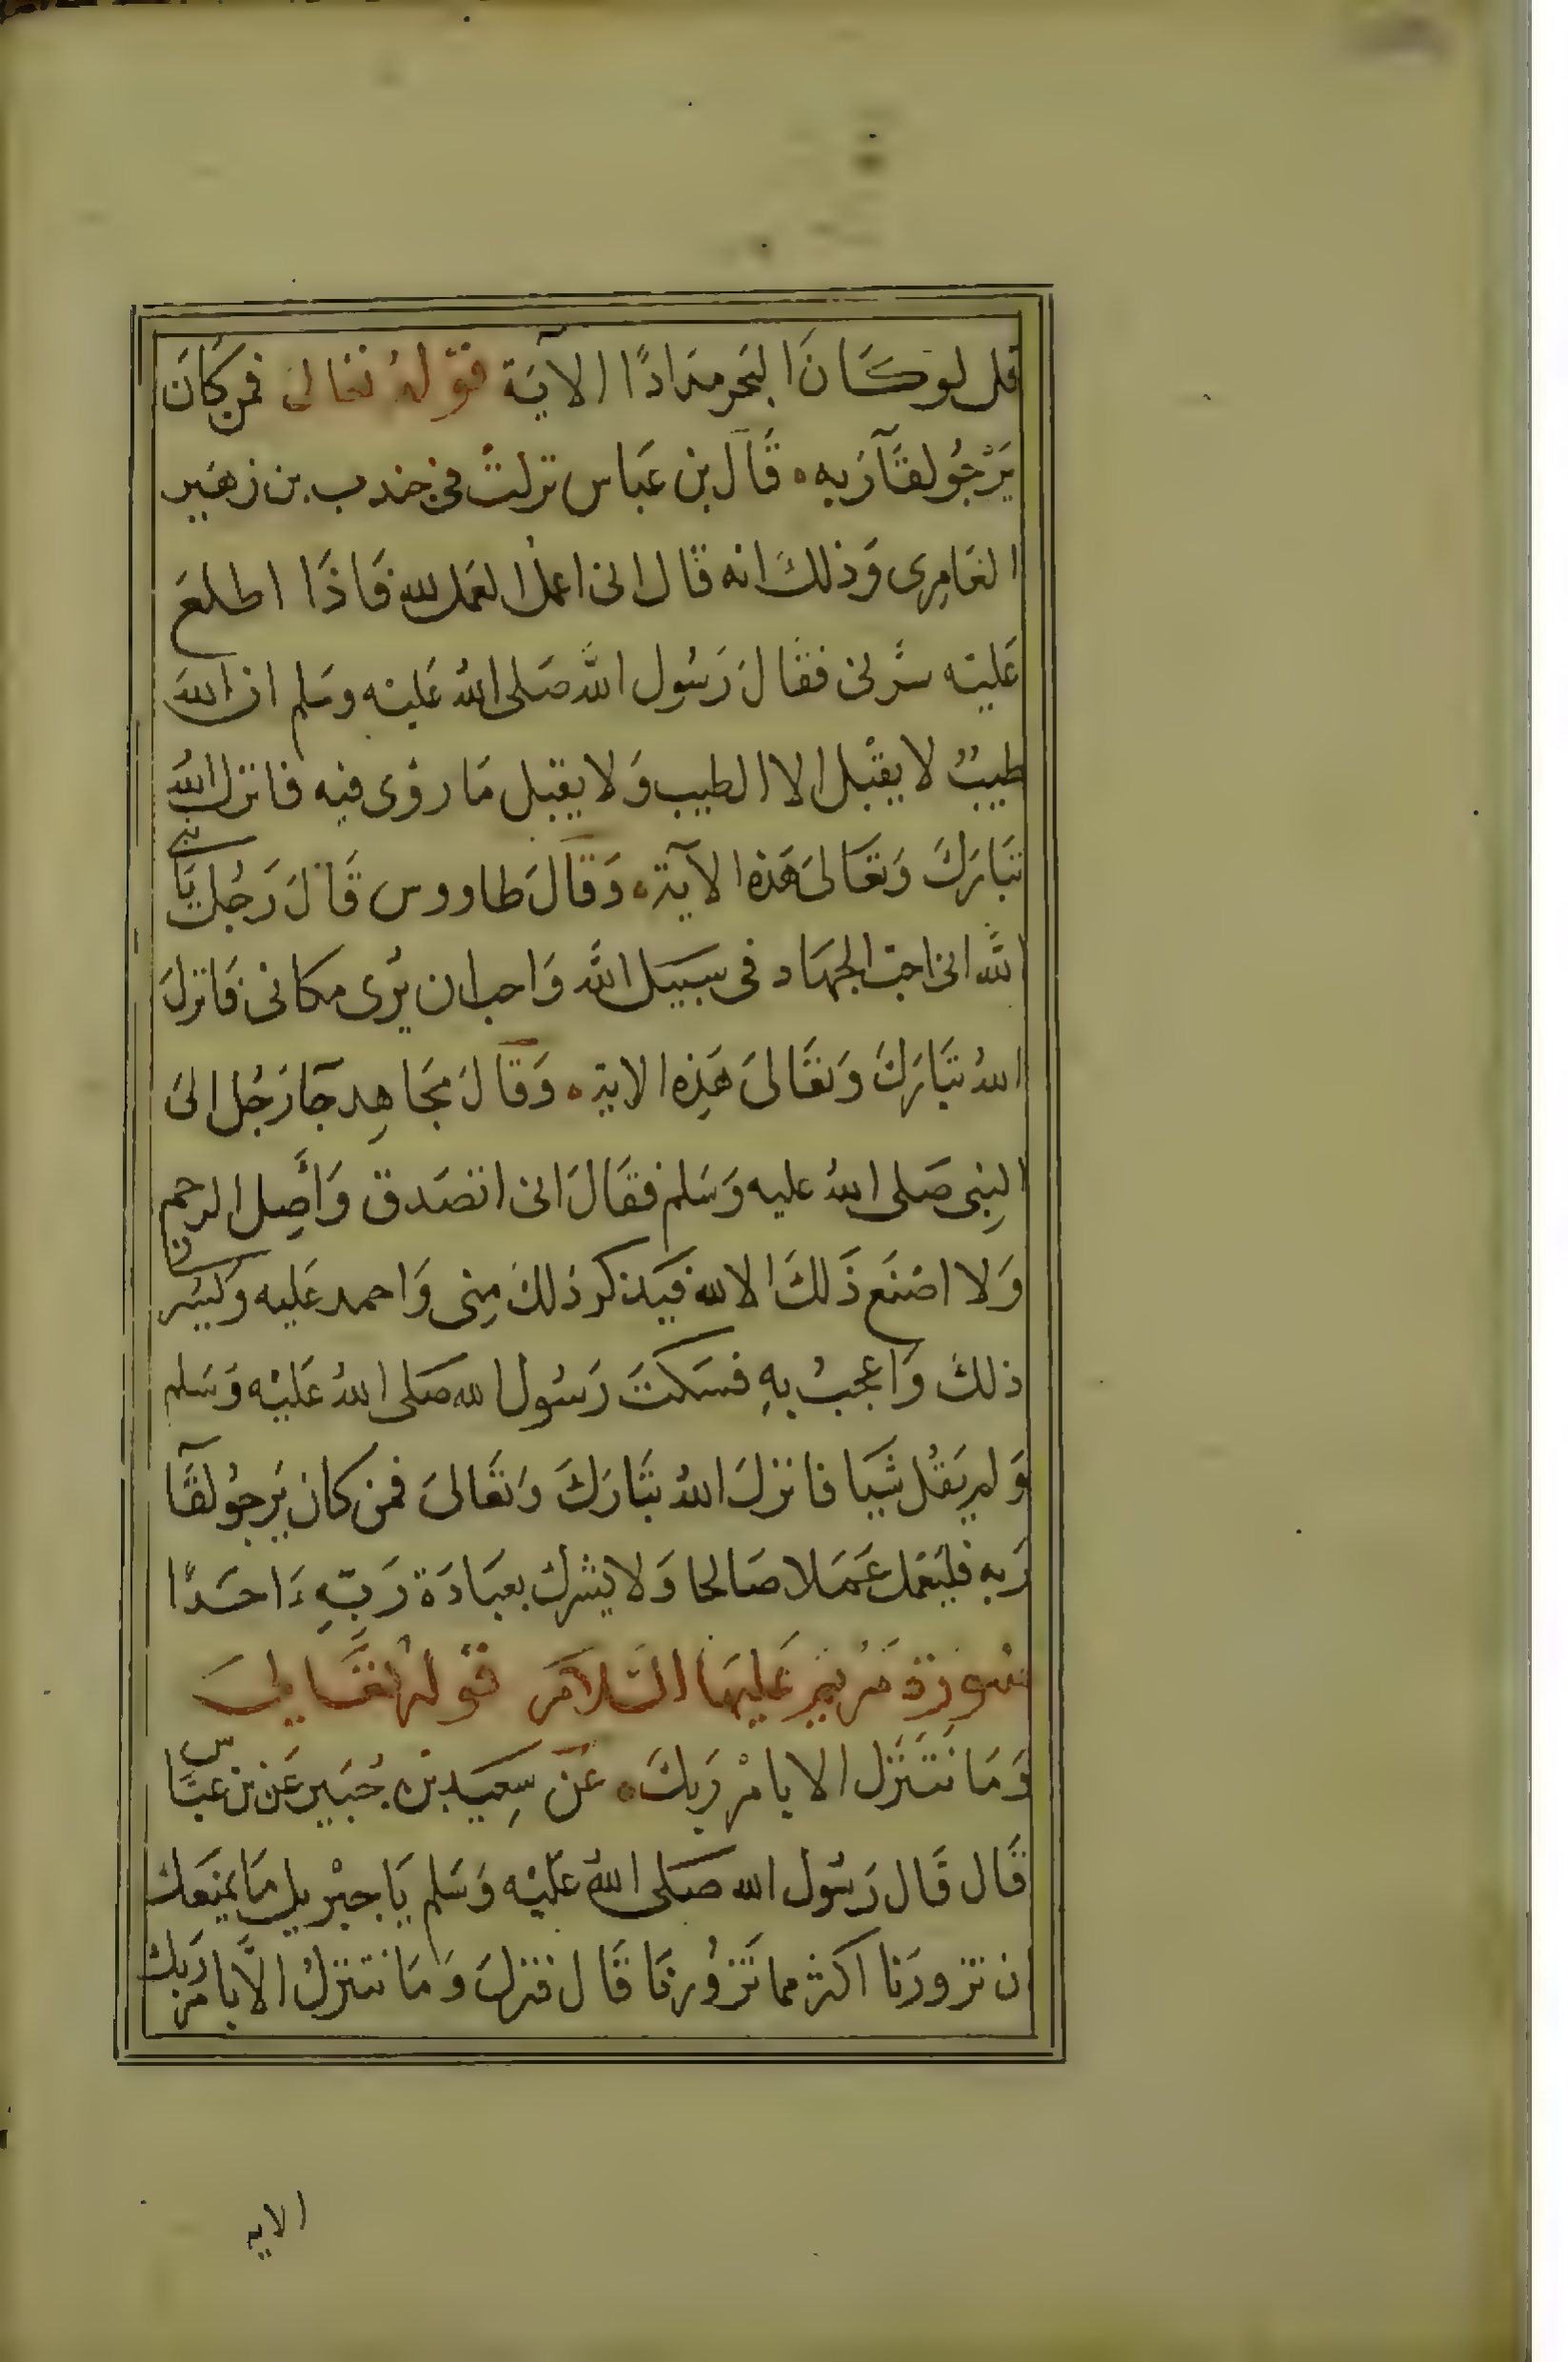 قل لو كَانَ البَحر مِدَادًا الآيَة قَولهُ تعَالىَ فمن كَانَ
يَرْجُو لقَآرَبه ۰ قَالَ بن عَباس نزلتْ في جندب بن زهَير
العَامِرى وَذلكَ انه قَال انى اعملُ العَمل لله فَاذَا اطلعَ
عَليْه سَرَّنى فقَالَ رَسُول اللَّه صَلى اللهُ عَليْه وسَلم ان اللهَ
طيبٌ لا يقْبل الا الطيب وَلا يقبل مَا رؤى فيه فانزل اللهُ
تبَارَكَ وَتعَالىَ هَذه الآية ۰ وَقَالَ طاووس قَالَ رَجُل يَا نبى
اللَّه انى احبّ الجهَاد فى سبيل اللَّه وَاحب ان يُرى مكانى فَانزلَ
اللهُ تبَارَكَ وَتعَالىَ هَذِه الاية ۰ وَقَالَ مجَاهِد جَآ رَجُل الىَ
النبِى صَلى اللهُ عليه وَسَلم فقَالَ انى اتصَدق وَأَصِل الرحم
وَلا اصْنَع ذَلكَ الا لله فيَذكر ذلكَ مِنى وَاحمد عَليه وَيَسُرنى
ذلكَ وَاعجبُ بهِ فسَكتَ رَسُول الله صَلى اللهُ عَليْه وَسَلم
وَلم يَقُل شَيا فانزلَ اللهُ تبَارَكَ وَتعَالىَ فمن كان يَرجوُ لقَآ
رَبه فليَعْمل عَمَلا صَالحا وَلا يشرك بعبَادَة رَبّهِ ءَاحَدًا
سُورة مَرْيم عَليهَا السَّلام قَولهُ تعَالىَ
وَمَا نَتَنَزل الا بامْر رَبكَ ۰ عَن سِعيد بن جُبَير عَن بن عبَّاس
قَال قَال رَسُول الله صَلى اللهُ عَليْه وَسَلم يَا جبْريل مَا يَمْنعَك
ان تزورَنا اكثر مما تَزُورنَا قَال فنزلتَ وَمَا نتنزلُ الَّا بامْر رَبكَ
الايه